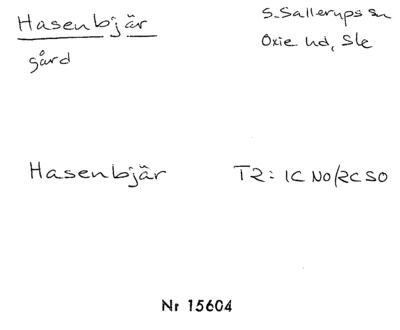 Hasenbjär
S. Sallerups sn
gård
Oxie hd, Ske
Hasenbjär
T2: 1C NO/2C SO
Nr 15604